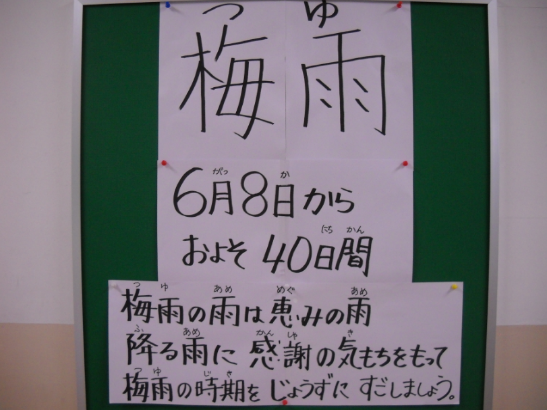 つゆ
梅雨
がつ か
6月8日から
にち かん
およそ 40日間
つ ゆ あめ めぐ あめ
梅雨の雨は恵みの雨
ふ あめ かん しゃ き
降る雨に 感謝の気もちをもって
つ ゆ じ き
梅雨の時期を じょうずに すごしましょう。